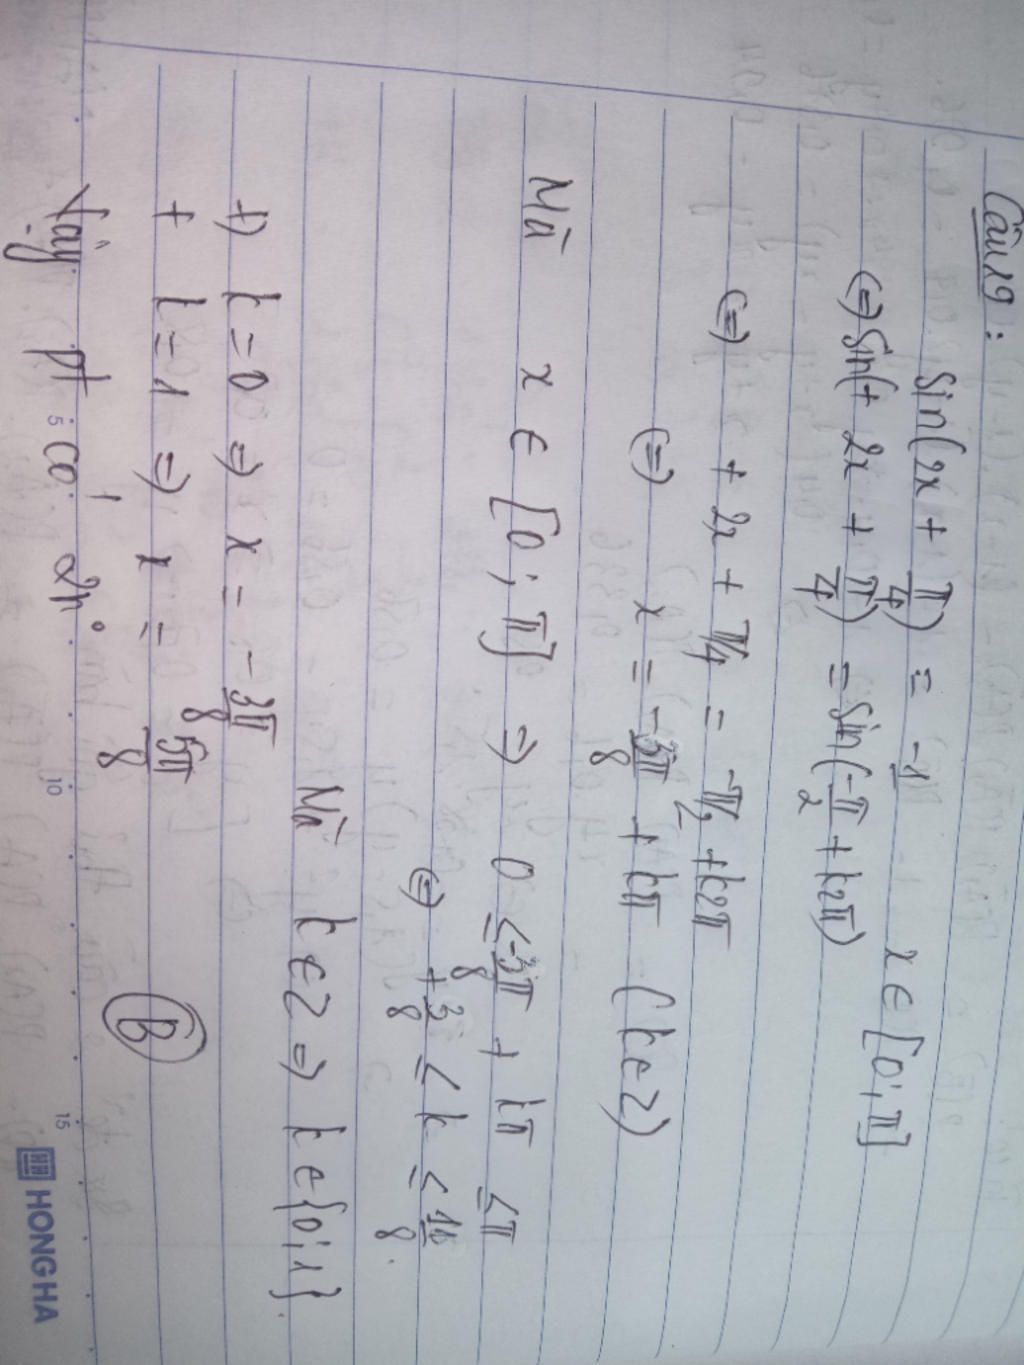 Câu 19:
sin(2x + π/4) = -1 x ∈ [0; π]
(=) sin(+ 2x + π/4) = sin(-π/2 + k2π)
(=) + 2x + π/4 = -π/2 + k2π
(=) x = -3π/8 + kπ (k∈Z)
Mà x ∈ [0; π] => 0 ≤ -3π/8 + kπ ≤ π
(=) +3/8 ≤ k ≤ 11/8.
Mà k ∈ Z => k ∈ {0; 1}.
+) k = 0 => x = -3π/8
+ k = 1 => x = 5π/8
Vậy pt có 2n° B
5 10 15
HONG HA